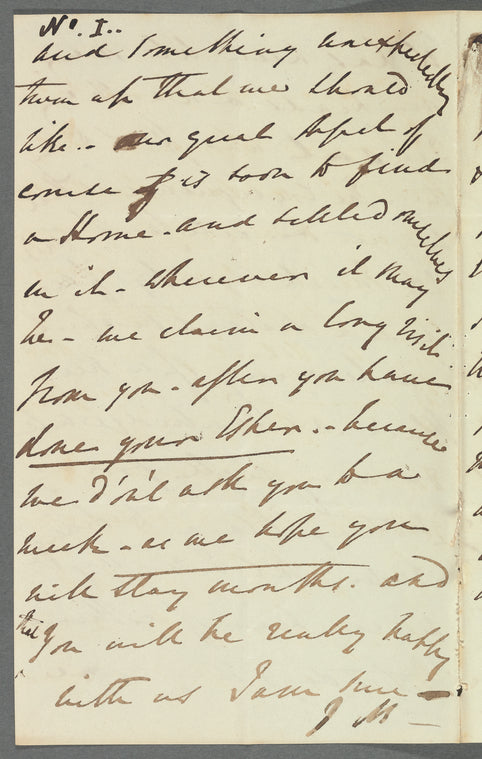 No. I..
and something unexpectedly
turn up that we should
like. - our great hope of
course is soon to find
a Home - and settled ourselves
in it - wherever it may
be - we claim a long visit
from you - after you have
done your Esher. - because
we d'ont ask you to a
week - as we hope you
will stay months. and
that you will be really happy
with us I am sure -
J M -